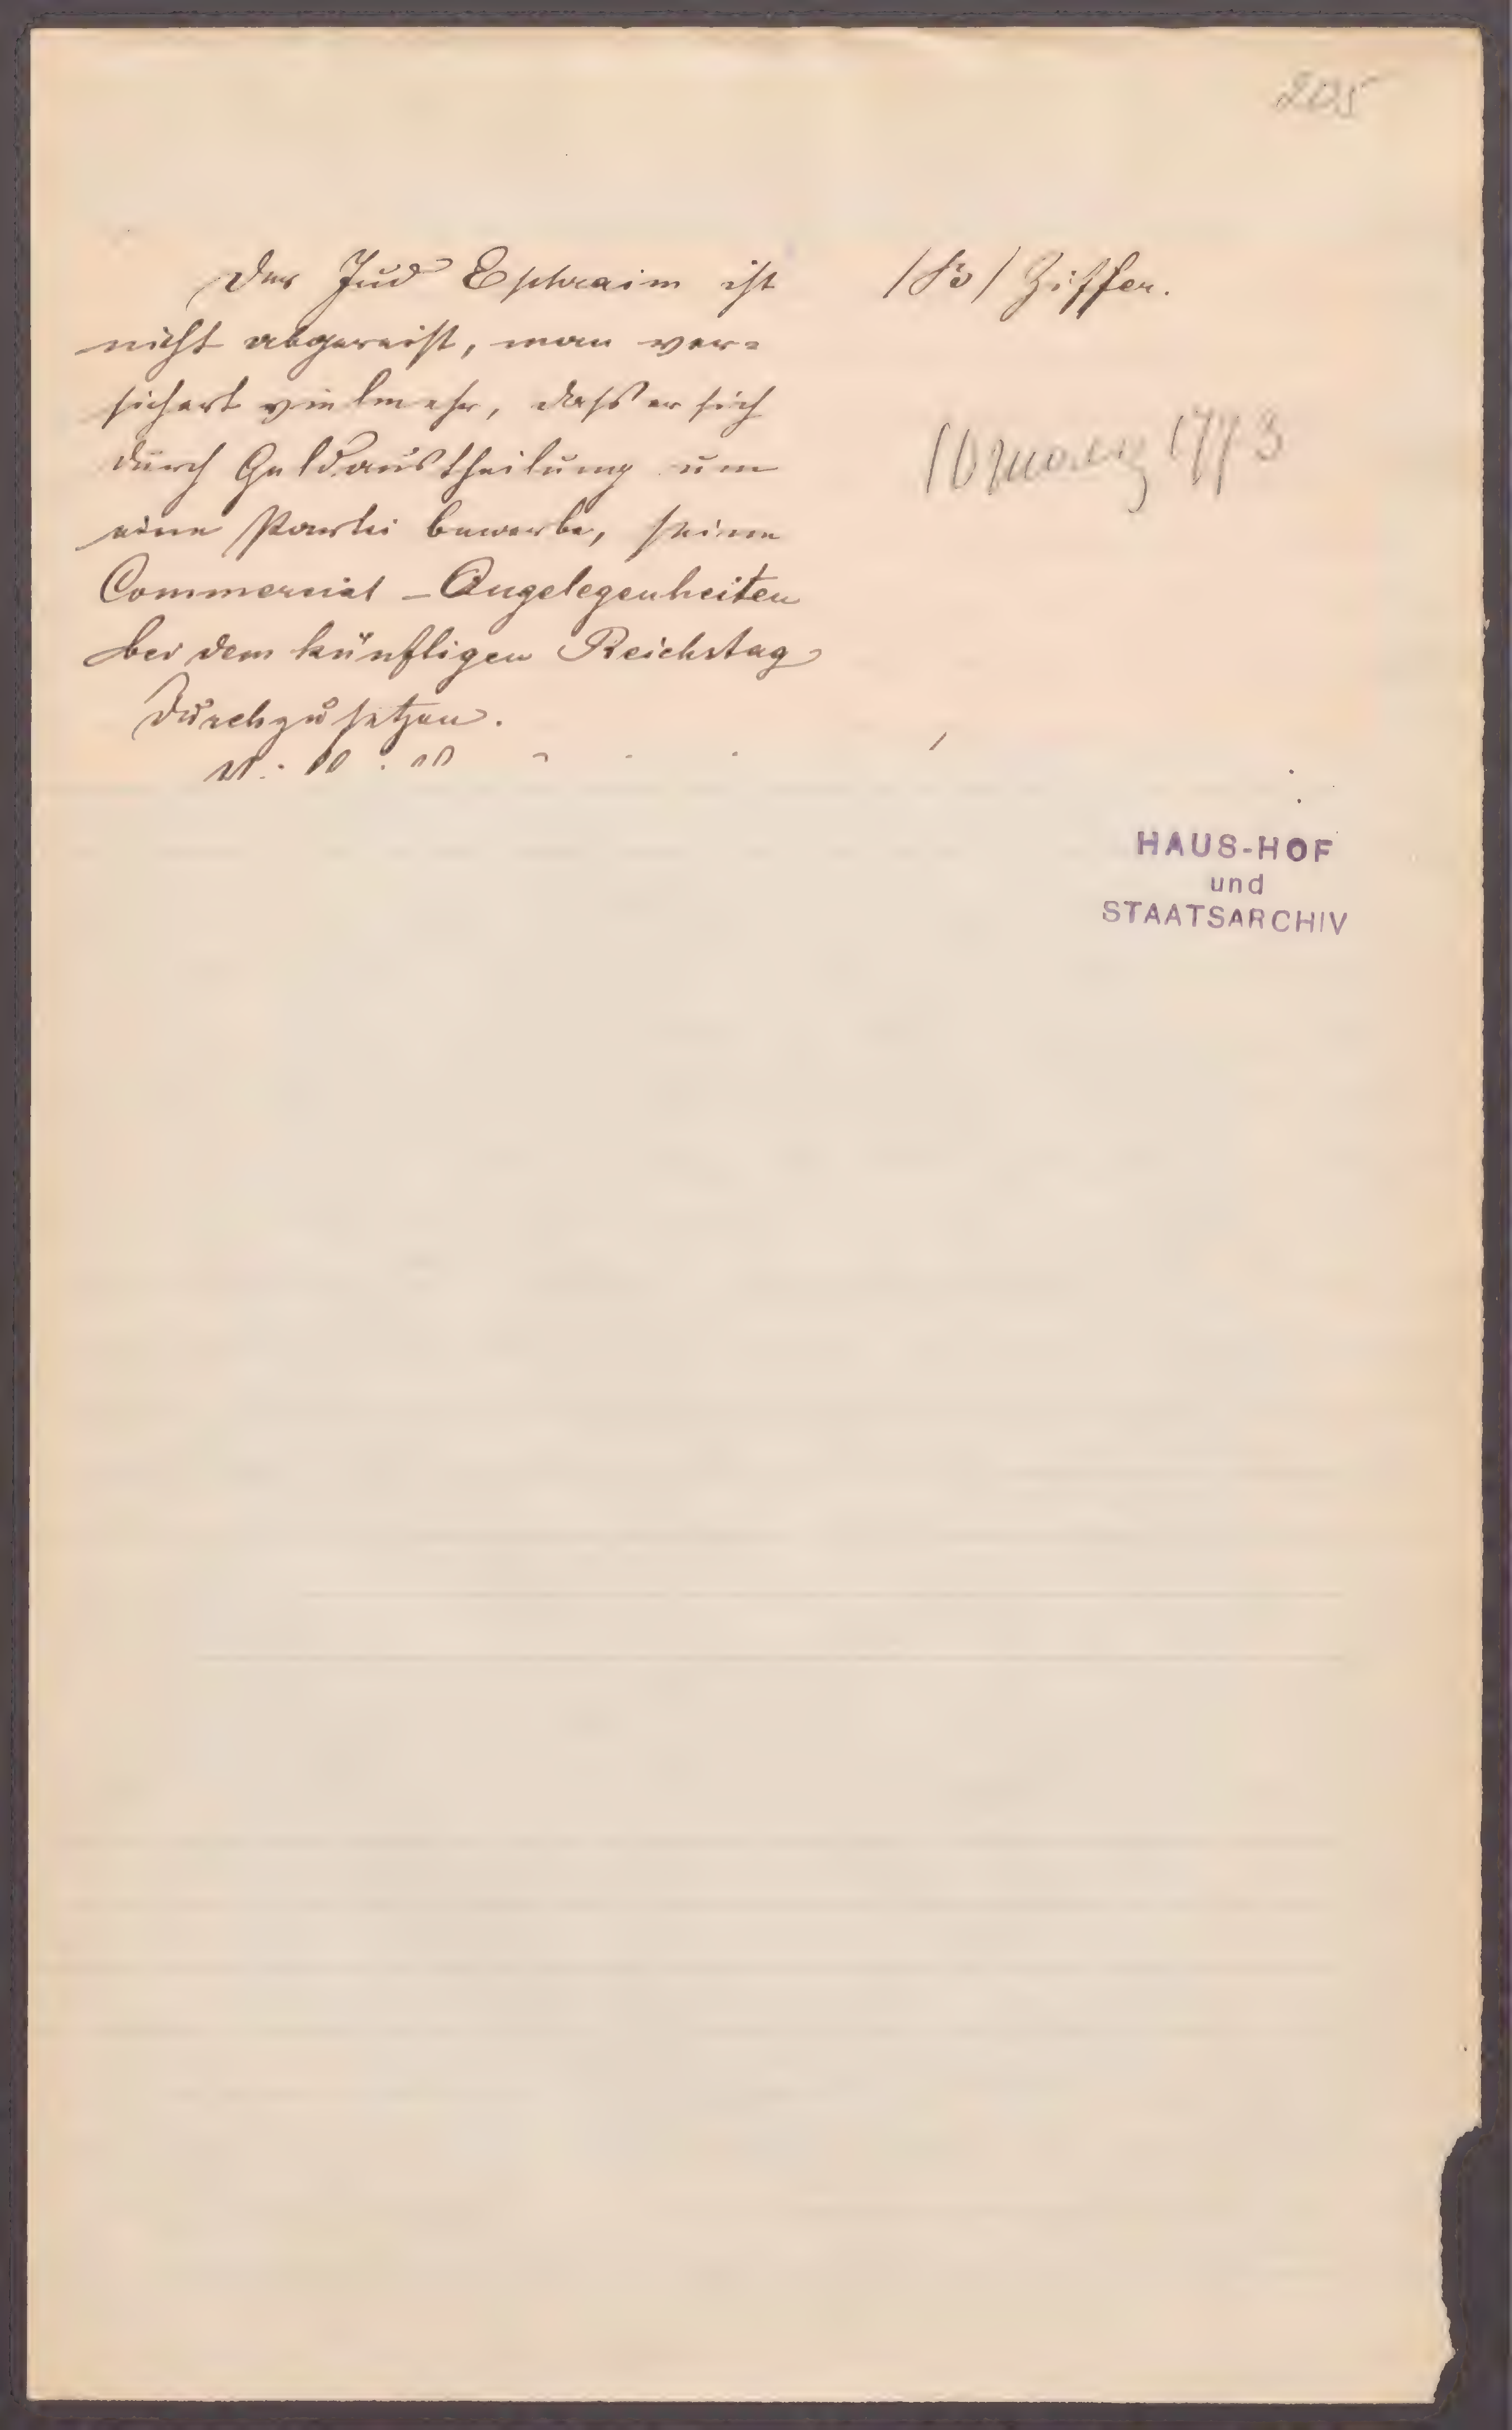 205
Der Jud Ephraim ist
nicht abgereist, man ver=
sichert vielmehr, dass er sich
durch Geldaustheilung um
eine Partei bewerbe, seine
Commercial-Angelegenheiten
bei dem künftigen Reichstag
durchzusetzen.
Ziffer.
10 1773
HAUS-HOF
und
STAATSARCHIV